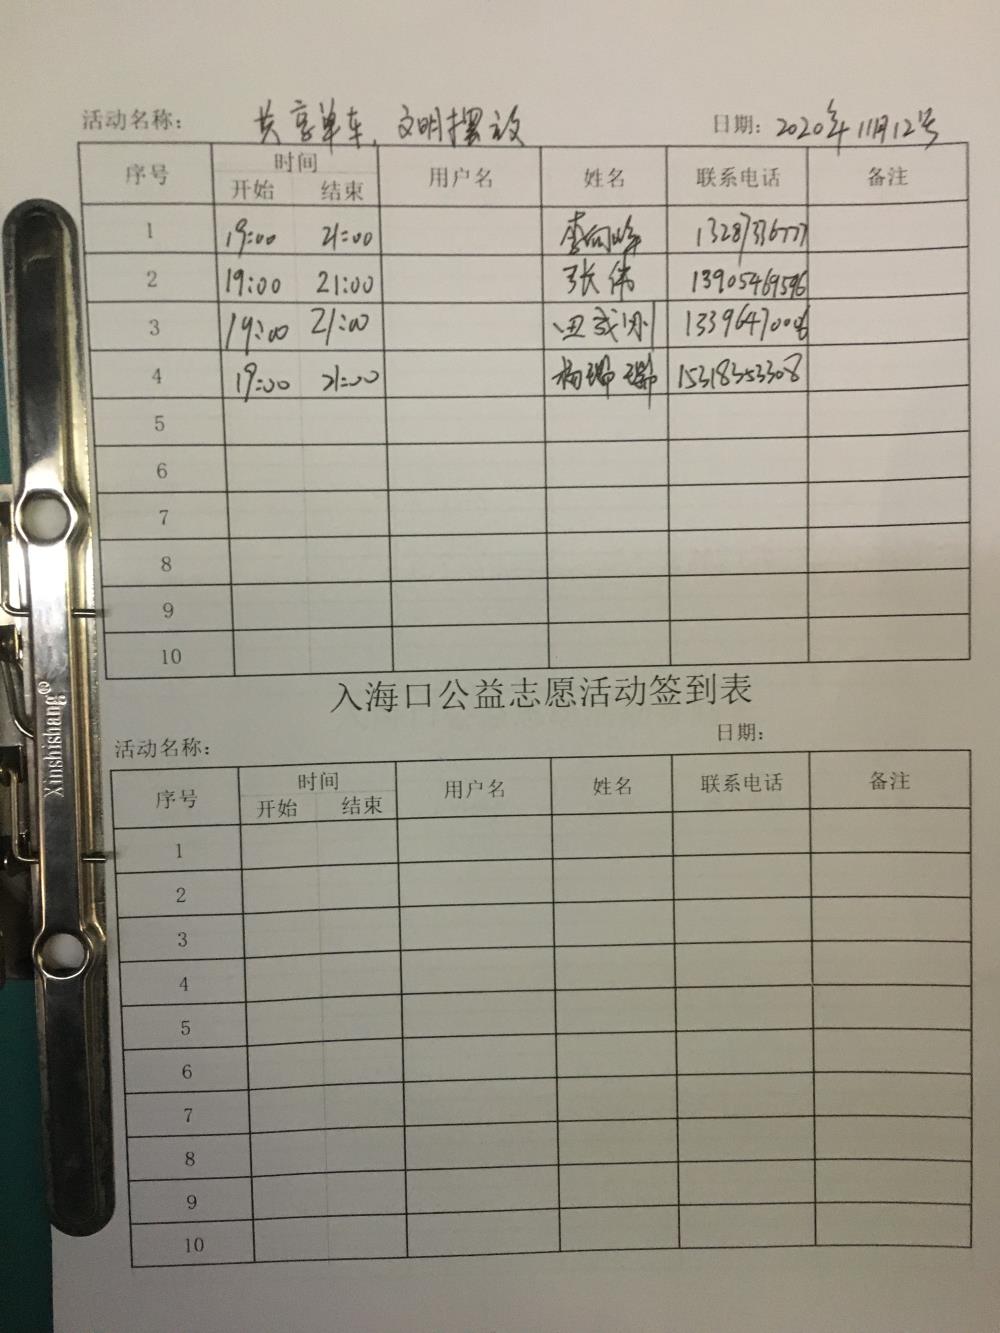 活动名称： 共享单车，文明摆放 日期：2020年11月12号
序号 时间 用户名 姓名 联系电话 备注
开始 结束
1 19:00 21:00 李向峰 13287336777
2 19:00 21:00 张伟 13905469596
3 19:00 21:00 13396470006
4 19:00 21:00 杨瑞瑞 15318353308
5
6
7
8
9
10
入海口公益志愿活动签到表
活动名称： 日期：
序号 时间 用户名 姓名 联系电话 备注
开始 结束
1
2
3
4
5
6
7
8
9
10
Xinshishang®